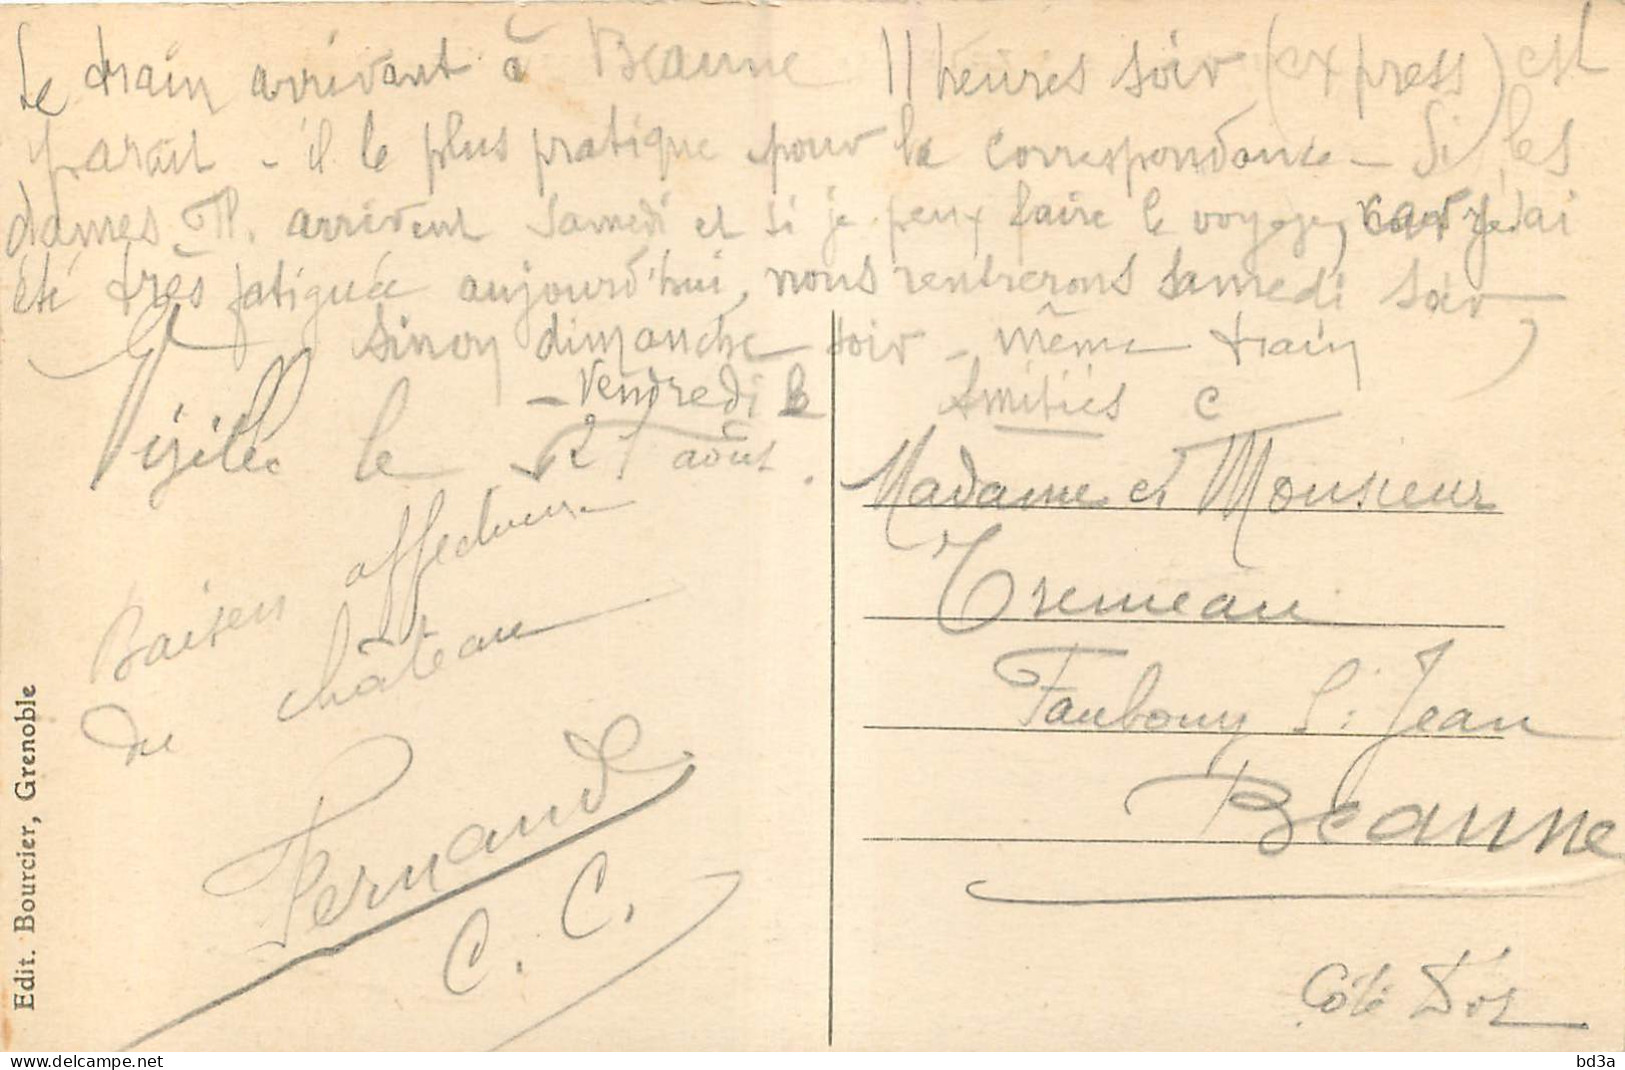 Le train arrivant à Beaune 11 heures soir (express) est
parait-il le plus pratique pour la correspondance - Si les
dames arrivent samedi et si je peux faire le voyage, car j'ai
été très fatiguée aujourd'hui, nous rentrerons samedi soir
sinon dimanche soir - même train
- Vendredi
Amitiés C
Vizille le 21 août.
Baisers affectueux
du château
Fernand
C. C.
Madame et Monsieur
Tremeau
Faubourg St Jean
Beaune
Côte d'Or
Edit. Bourcier, Grenoble
bd3a